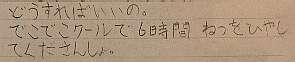 どうすればいいの。
でこでこクールで6時間 ねつをひやし
てんださんしょ。